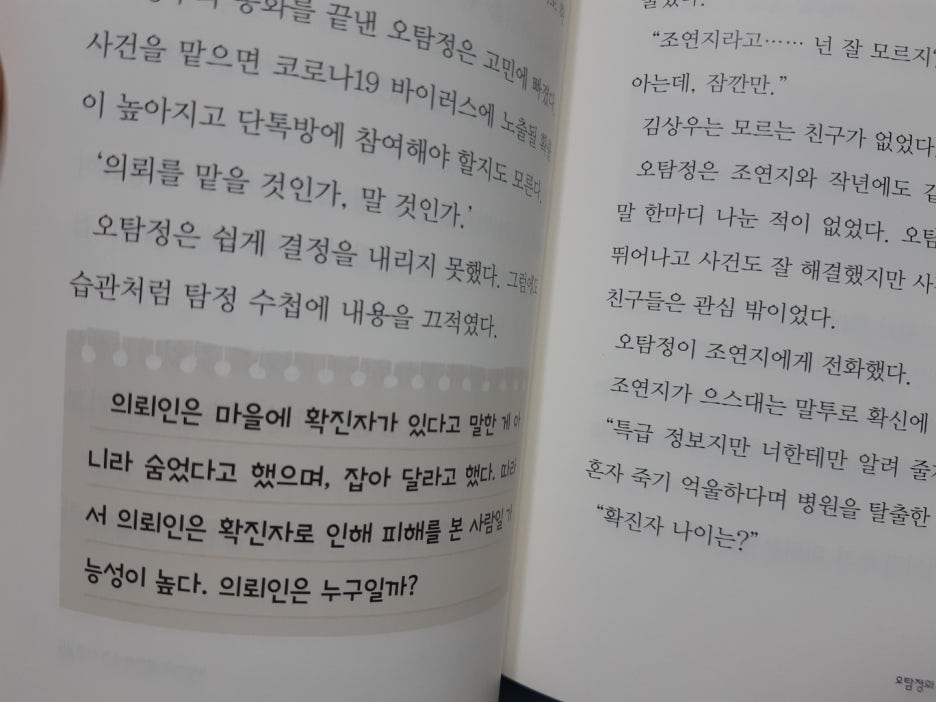 통화를 끝낸 오탐정은 고민에 빠졌다.
사건을 맡으면 코로나19 바이러스에 노출될 확률
이 높아지고 단톡방에 참여해야 할지도 모른다.
‘의뢰를 맡을 것인가, 말 것인가.’
오탐정은 쉽게 결정을 내리지 못했다. 그럼에도
습관처럼 탐정 수첩에 내용을 끄적였다.
의뢰인은 마을에 확진자가 있다고 말한 게 아
니라 숨었다고 했으며, 잡아 달라고 했다. 따라
서 의뢰인은 확진자로 인해 피해를 본 사람일 가
능성이 높다. 의뢰인은 누구일까?
“조연지라고…… 넌 잘 모르지
아는데, 잠깐만.”
김상우는 모르는 친구가 없었다.
오탐정은 조연지와 작년에도
말 한마디 나눈 적이 없었다. 오탐
뛰어나고 사건도 잘 해결했지만
친구들은 관심 밖이었다.
오탐정이 조연지에게 전화했다.
조연지가 으스대는 말투로 확신에
“특급 정보지만 너한테만 알려 줄
혼자 죽기 억울하다며 병원을 탈출한
“확진자 나이는?”
오탐정의